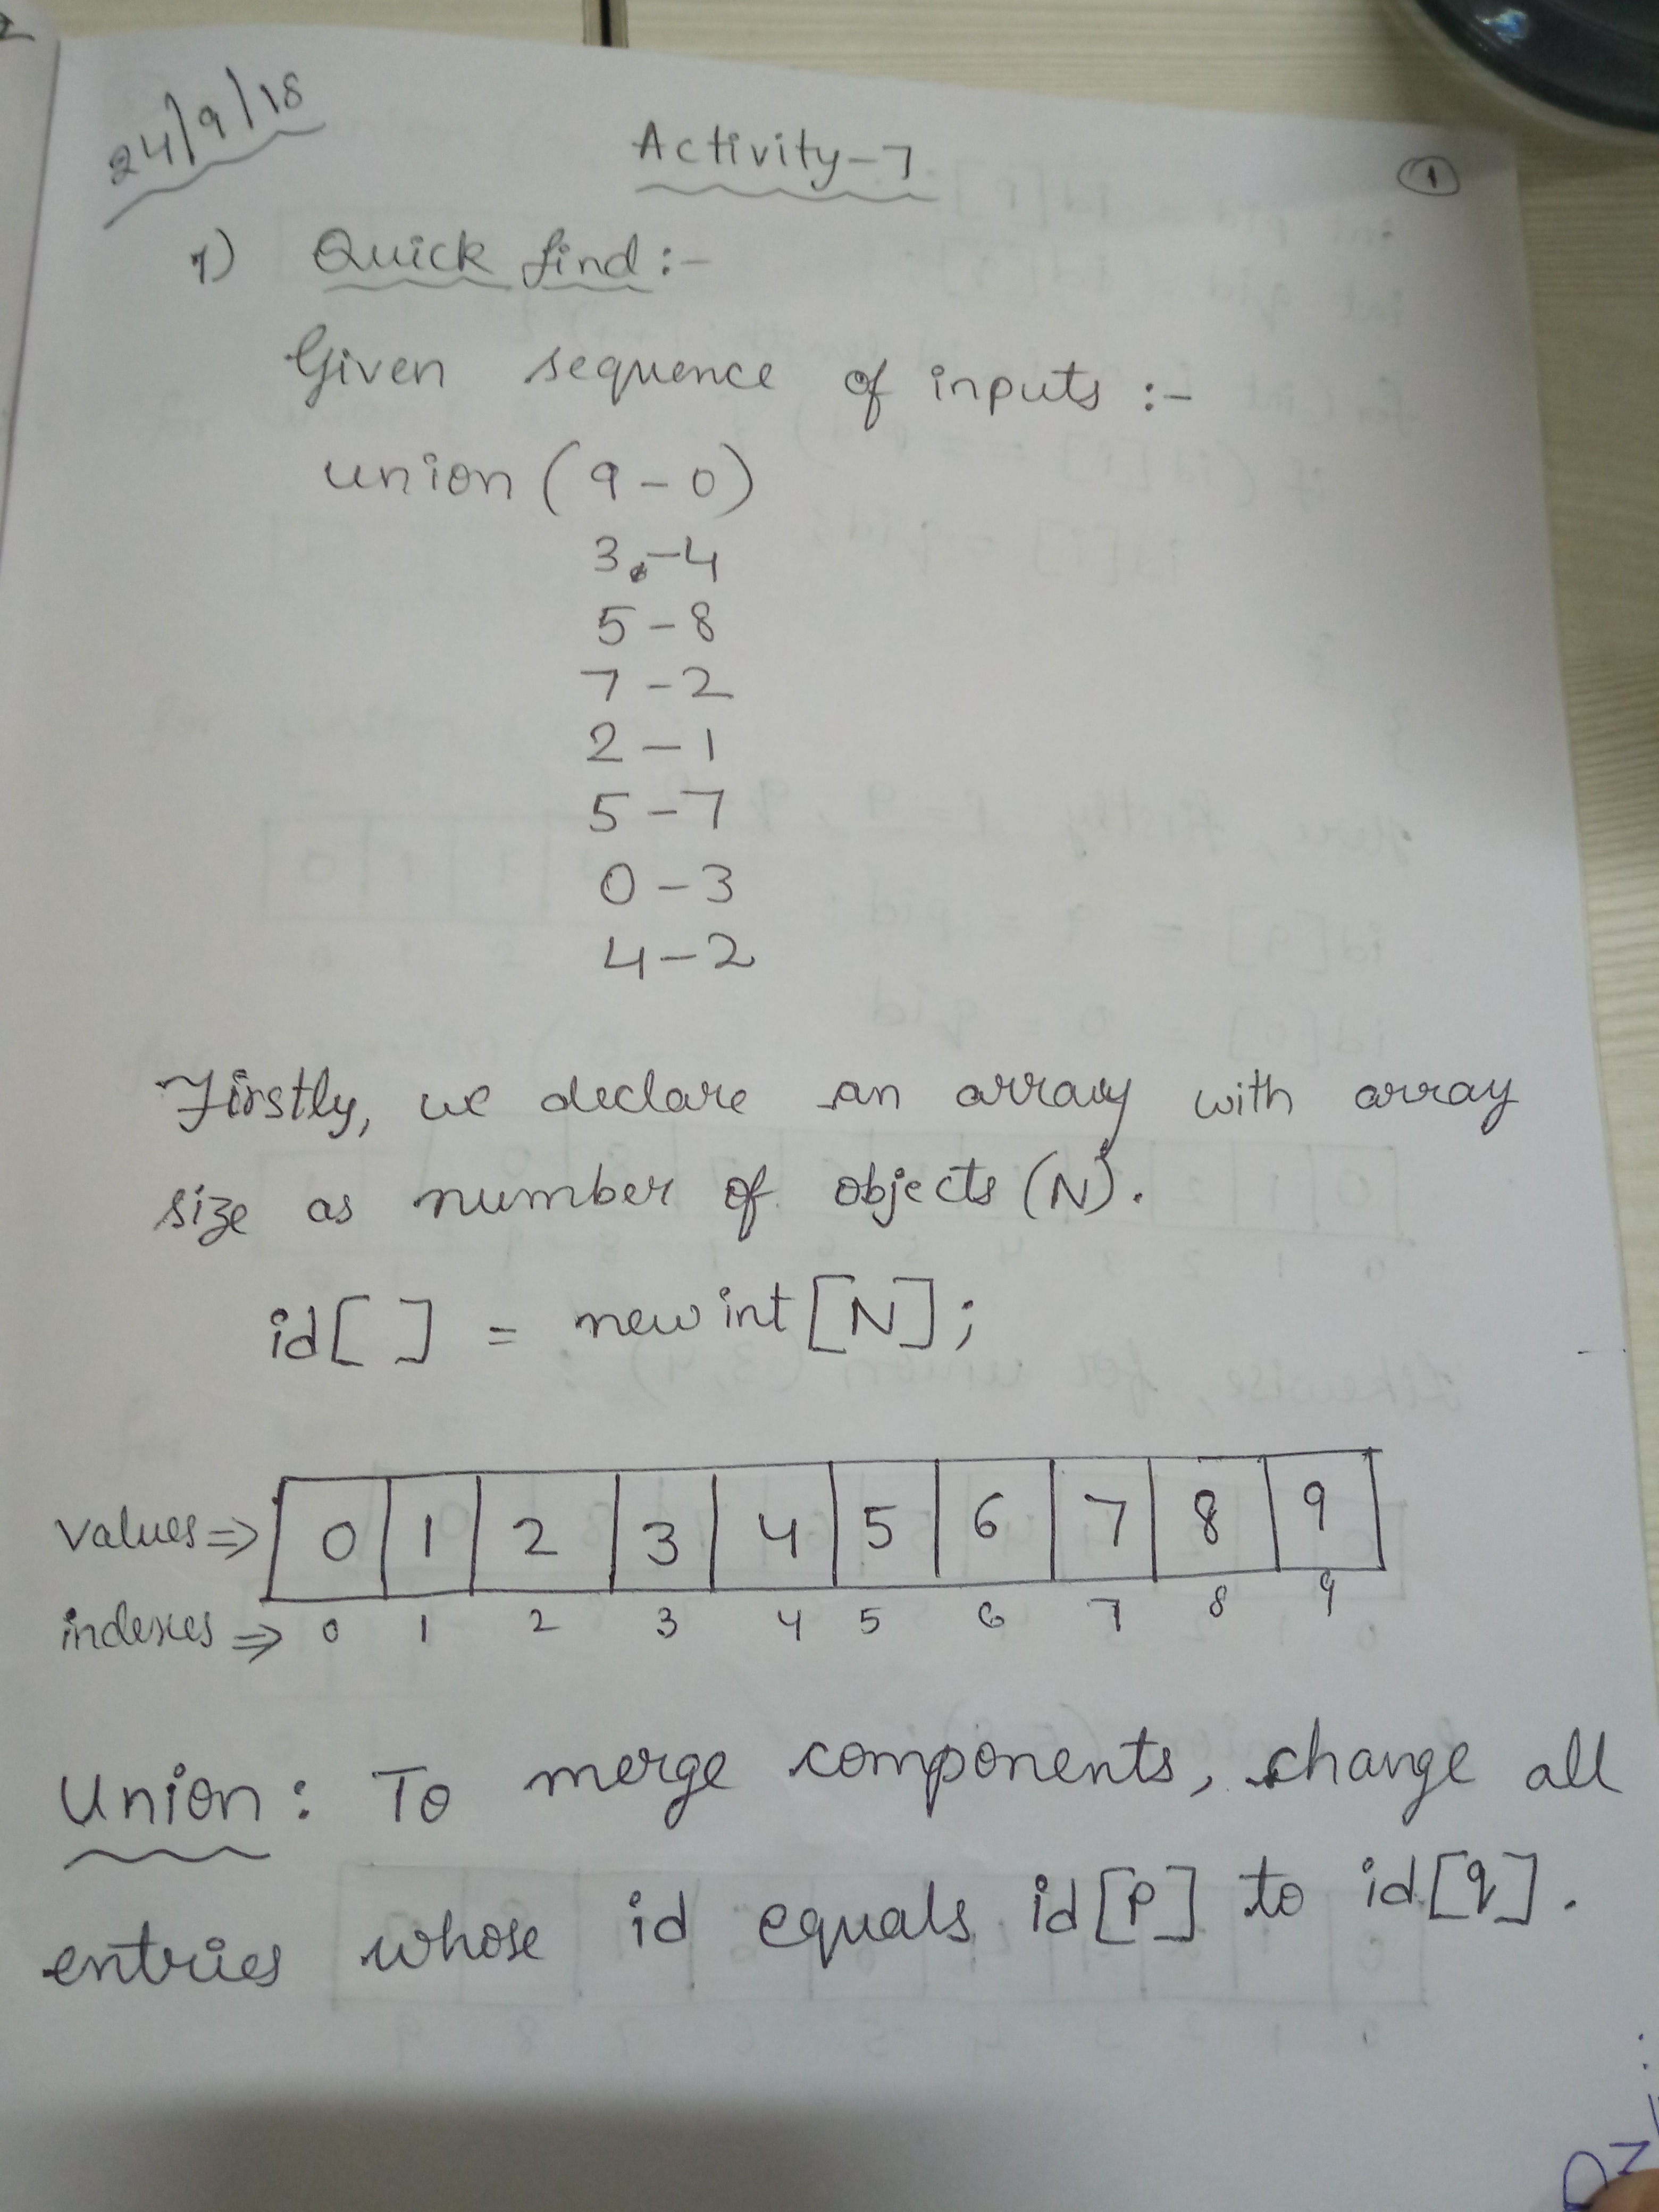 24/9/18
Activity-7
1
1) Quick find :-
Given sequence of inputs :-
union (9-0)
3-4
5-8
7-2
2-1
5-7
0-3
4-2
Firstly, we declare an array with array
size as number of objects (N).
id[ ] = new int [N];
values ⇒ 0 1 2 3 4 5 6 7 8 9
indexes ⇒ 0 1 2 3 4 5 6 7 8 9
Union : To merge components, change all
entries whose id equals id[P] to id[q].